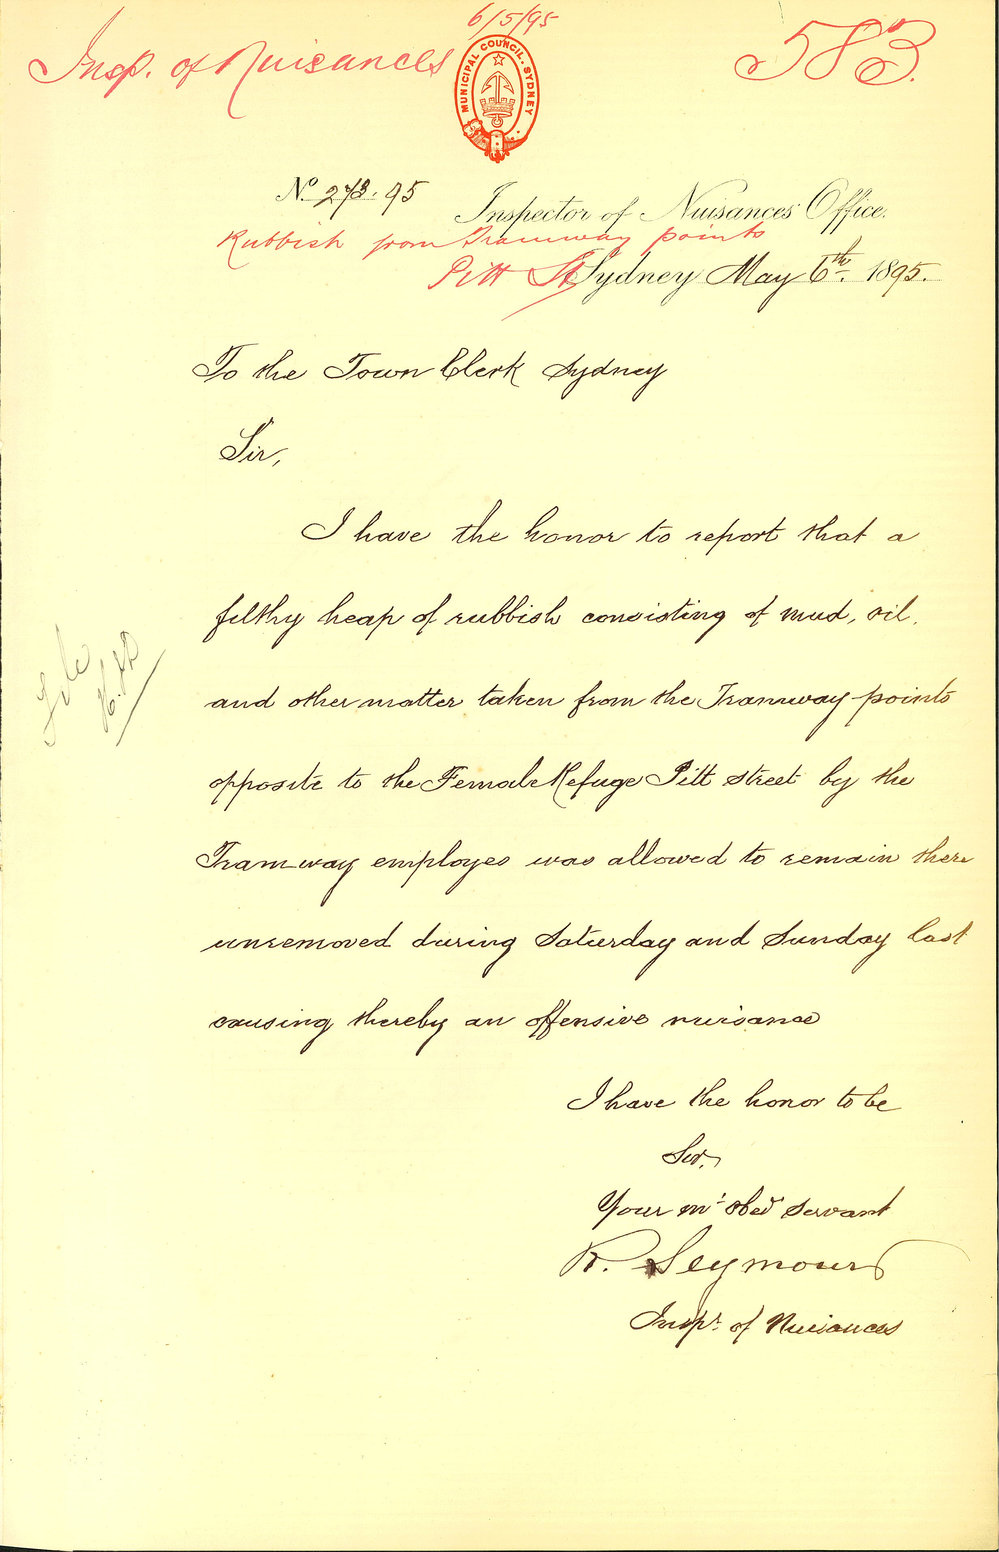 6/5/95
Insp. of Nuisances
583.
MUNICIPAL COUNCIL. SYDNEY
No. 273.95
Inspector of Nuisances Office.
Rubbish from Tramway points
Pitt St
Sydney May 6th. 1895.
To the Town Clerk Sydney
Sir,
I have the honor to report that a
filthy heap of rubbish consisting of mud, oil,
and other matter taken from the Tramway points
opposite to the Female Refuge Pitt street by the
Tramway employes was allowed to remain there
unremoved during Saturday and Sunday last
causing thereby an offensive nuisance
I have the honor to be
Sir,
Your mt obed servant
R. Seymour
Inspr. of Nuisances
File